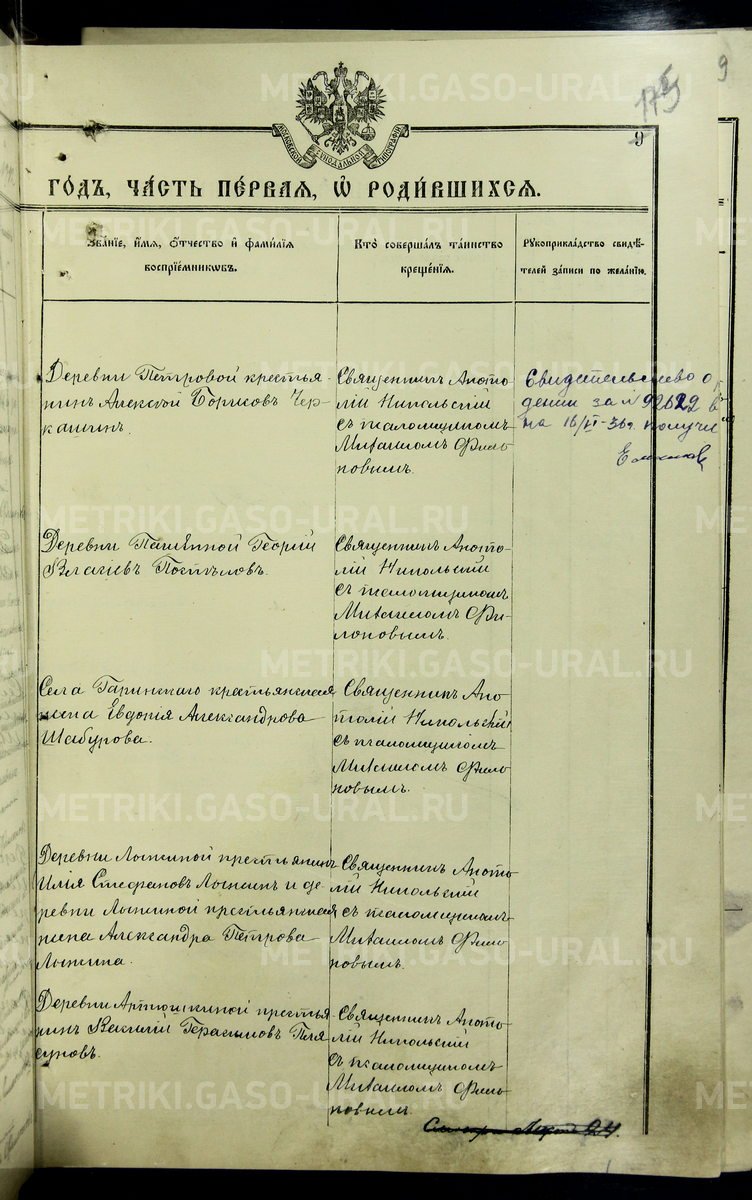 METRIKI.GASO-URAL.RU
175
9
9
МОСКОВСКОЙ СѴНОДАЛЬНОЙ ТИПОГРАФІИ
ГО́ДЪ, ЧА́СТЬ ПЕ́РВАЯ, Ѡ҆ РОДИ́ВШИХСЯ.
Зва́нїе, и҆́мя, ѻ҆́тчество и҆ фами́лїя
воспрїе́мникѡвъ.
Кто̀ соверша́лъ та́инство
креще́нїя.
Рꙋкоприкла́дство свидѣ́-
телей за́писи по жела́нїю.
Деревни Петровой крестья-
нинъ Алексѣй Борисовъ Чер-
кашинъ.
Священникъ Анато-
лій Никольскій
съ псаломщикомъ
Михаиломъ Фили-
повымъ.
Свидетельство о
дении за № 92622 в
на 16/VI-36г. получи
METRIKI.GASO-URAL.RU
Деревни Георгій
Власіевъ Постѣловъ.
Священникъ Анато-
лій Никольскій
съ псаломщикомъ
Михаиломъ Фи-
липовымъ.
METRIKI.GASO-URAL.RU
Села Гаринскаго крестьянская
Евдокія Александрова
Шабурова.
Священникъ Ана-
толій Никольскій
съ псаломщикомъ
Михаиломъ Фили-
повымъ.
METRIKI.GASO-URAL.RU
Деревни Лыжиной крестьянинъ
Илія Стефановъ Лыжинъ и де-
ревни Лыжиной крестьянская
Александра Петрова
Лыжина.
Священникъ Анато-
лій Никольскій
съ псаломщикомъ
Михаиломъ Фили-
повымъ.
METRIKI.GASO-URAL.RU
Деревни Артюшкиной крестья-
нинъ Василій Герасимовъ Пля-
суновъ.
Священникъ Анато-
лій Никольскій
съ псаломщикомъ
Михаиломъ Фили-
повымъ
METRIKI.GASO-URAL.RU